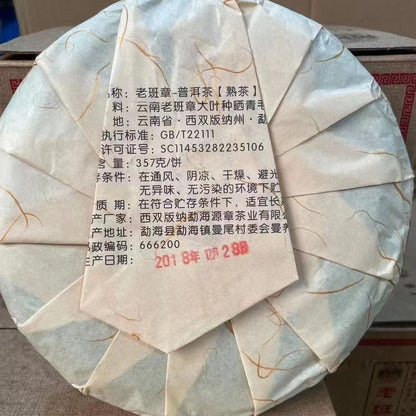 名称：老班章-普洱茶【熟茶】
料：云南老班章大叶种晒青毛
地：云南省·西双版纳州·勐
执行标准：GB/T22111
许可证号：SC11453282235106
含量：357克/饼
存条件：在通风、阴凉、干燥、避光
无异味、无污染的环境下贮
质期：在符合贮存条件下，适宜长
产厂家：西双版纳勐海源章茶业有限
产地址：勐海县勐海镇曼尾村委会曼
邮政编码：666200
生产日期：
2018年 28日